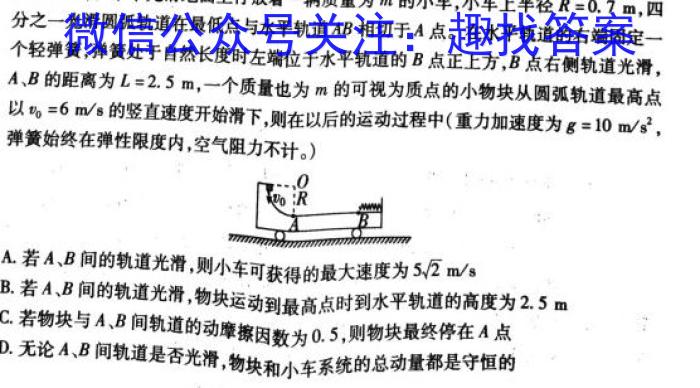 质量为 m 的小车,小车上半径 R=0.7 m,四
分之一光滑圆弧轨道在最低点与水平轨道AB相切于A点。在水平轨道的右端固定一
微信公众号关注:趣找答案
个轻弹簧,弹簧处于自然长度时左端位于水平轨道的 B 点正上方,B 点右侧轨道光滑,
A、B 的距离为 L=2.5 m,一个质量也为 m 的可视为质点的小物块从圆弧轨道最高点
以 v₀=6 m/s 的竖直速度开始滑下,则在以后的运动过程中(重力加速度为 g=10 m/s²,
弹簧始终在弹性限度内,空气阻力不计。)
O
v₀ R
A B
A. 若 A、B 间的轨道光滑,则小车可获得的最大速度为 5√2 m/s
B. 若 A、B 间的轨道光滑,物块运动到最高点时到水平轨道的高度为 2.5 m
C. 若物块与 A、B 间轨道的动摩擦因数为 0.5,则物块最终停在 A 点
D. 无论 A、B 间轨道是否光滑,物块和小车系统的总动量都是守恒的